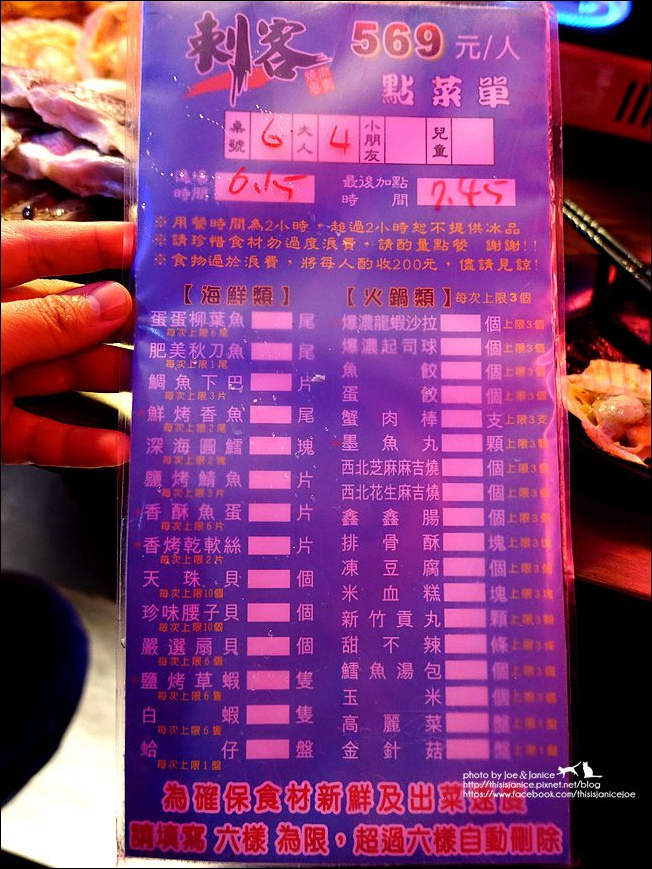 刺客 569 元/人
點菜單
桌號 6 大人 4 小朋友 兒童
時間 6.15 最後加點時間 7.45
※用餐時間為2小時，超過2小時恕不提供冰品
※請珍惜食材勿過度浪費，請酌量點餐 謝謝!!
※食物過於浪費，將每人酌收200元，儘請見諒!
【海鮮類】
蛋蛋柳葉魚 尾
每次上限6尾
肥美秋刀魚 尾
每次上限1尾
鯛魚下巴 片
每次上限3片
鮮烤香魚 尾
每次上限2尾
深海圓鱈 塊
每次上限2塊
鹽烤鯖魚 片
每次上限3片
香酥魚蛋 片
每次上限6片
香烤乾軟絲 片
每次上限2片
天珠貝 個
每次上限10個
珍味腰子貝 個
每次上限10個
嚴選扇貝 個
每次上限6個
鹽烤草蝦 隻
每次上限6隻
白蝦 隻
每次上限6隻
蛤仔 盤
每次上限1盤
【火鍋類】每次上限3個
爆濃龍蝦沙拉 個 上限3個
爆濃起司球 個 上限3個
魚餃 個 上限3個
蛋餃 個 上限3個
蟹肉棒 支 上限3支
墨魚丸 顆 上限3顆
西北芝麻麻吉燒 個 上限3個
西北花生麻吉燒 個 上限3個
鑫鑫腸 個 上限3個
排骨酥 塊 上限3塊
凍豆腐 個 上限3個
米血糕 塊 上限3塊
新竹貢丸 顆 上限3顆
甜不辣 條 上限3條
鱈魚湯包 個 上限3個
玉米 個 上限3個
高麗菜 盤 上限1盤
金針菇 盤 上限1盤
為確保食材新鮮及出菜速度
請填寫 六樣 為限，超過六樣自動刪除
photo by Joe & Janice
http://thisisjanice.pixnet.net/blog
https://www.facebook.com/thisisjanicejoe